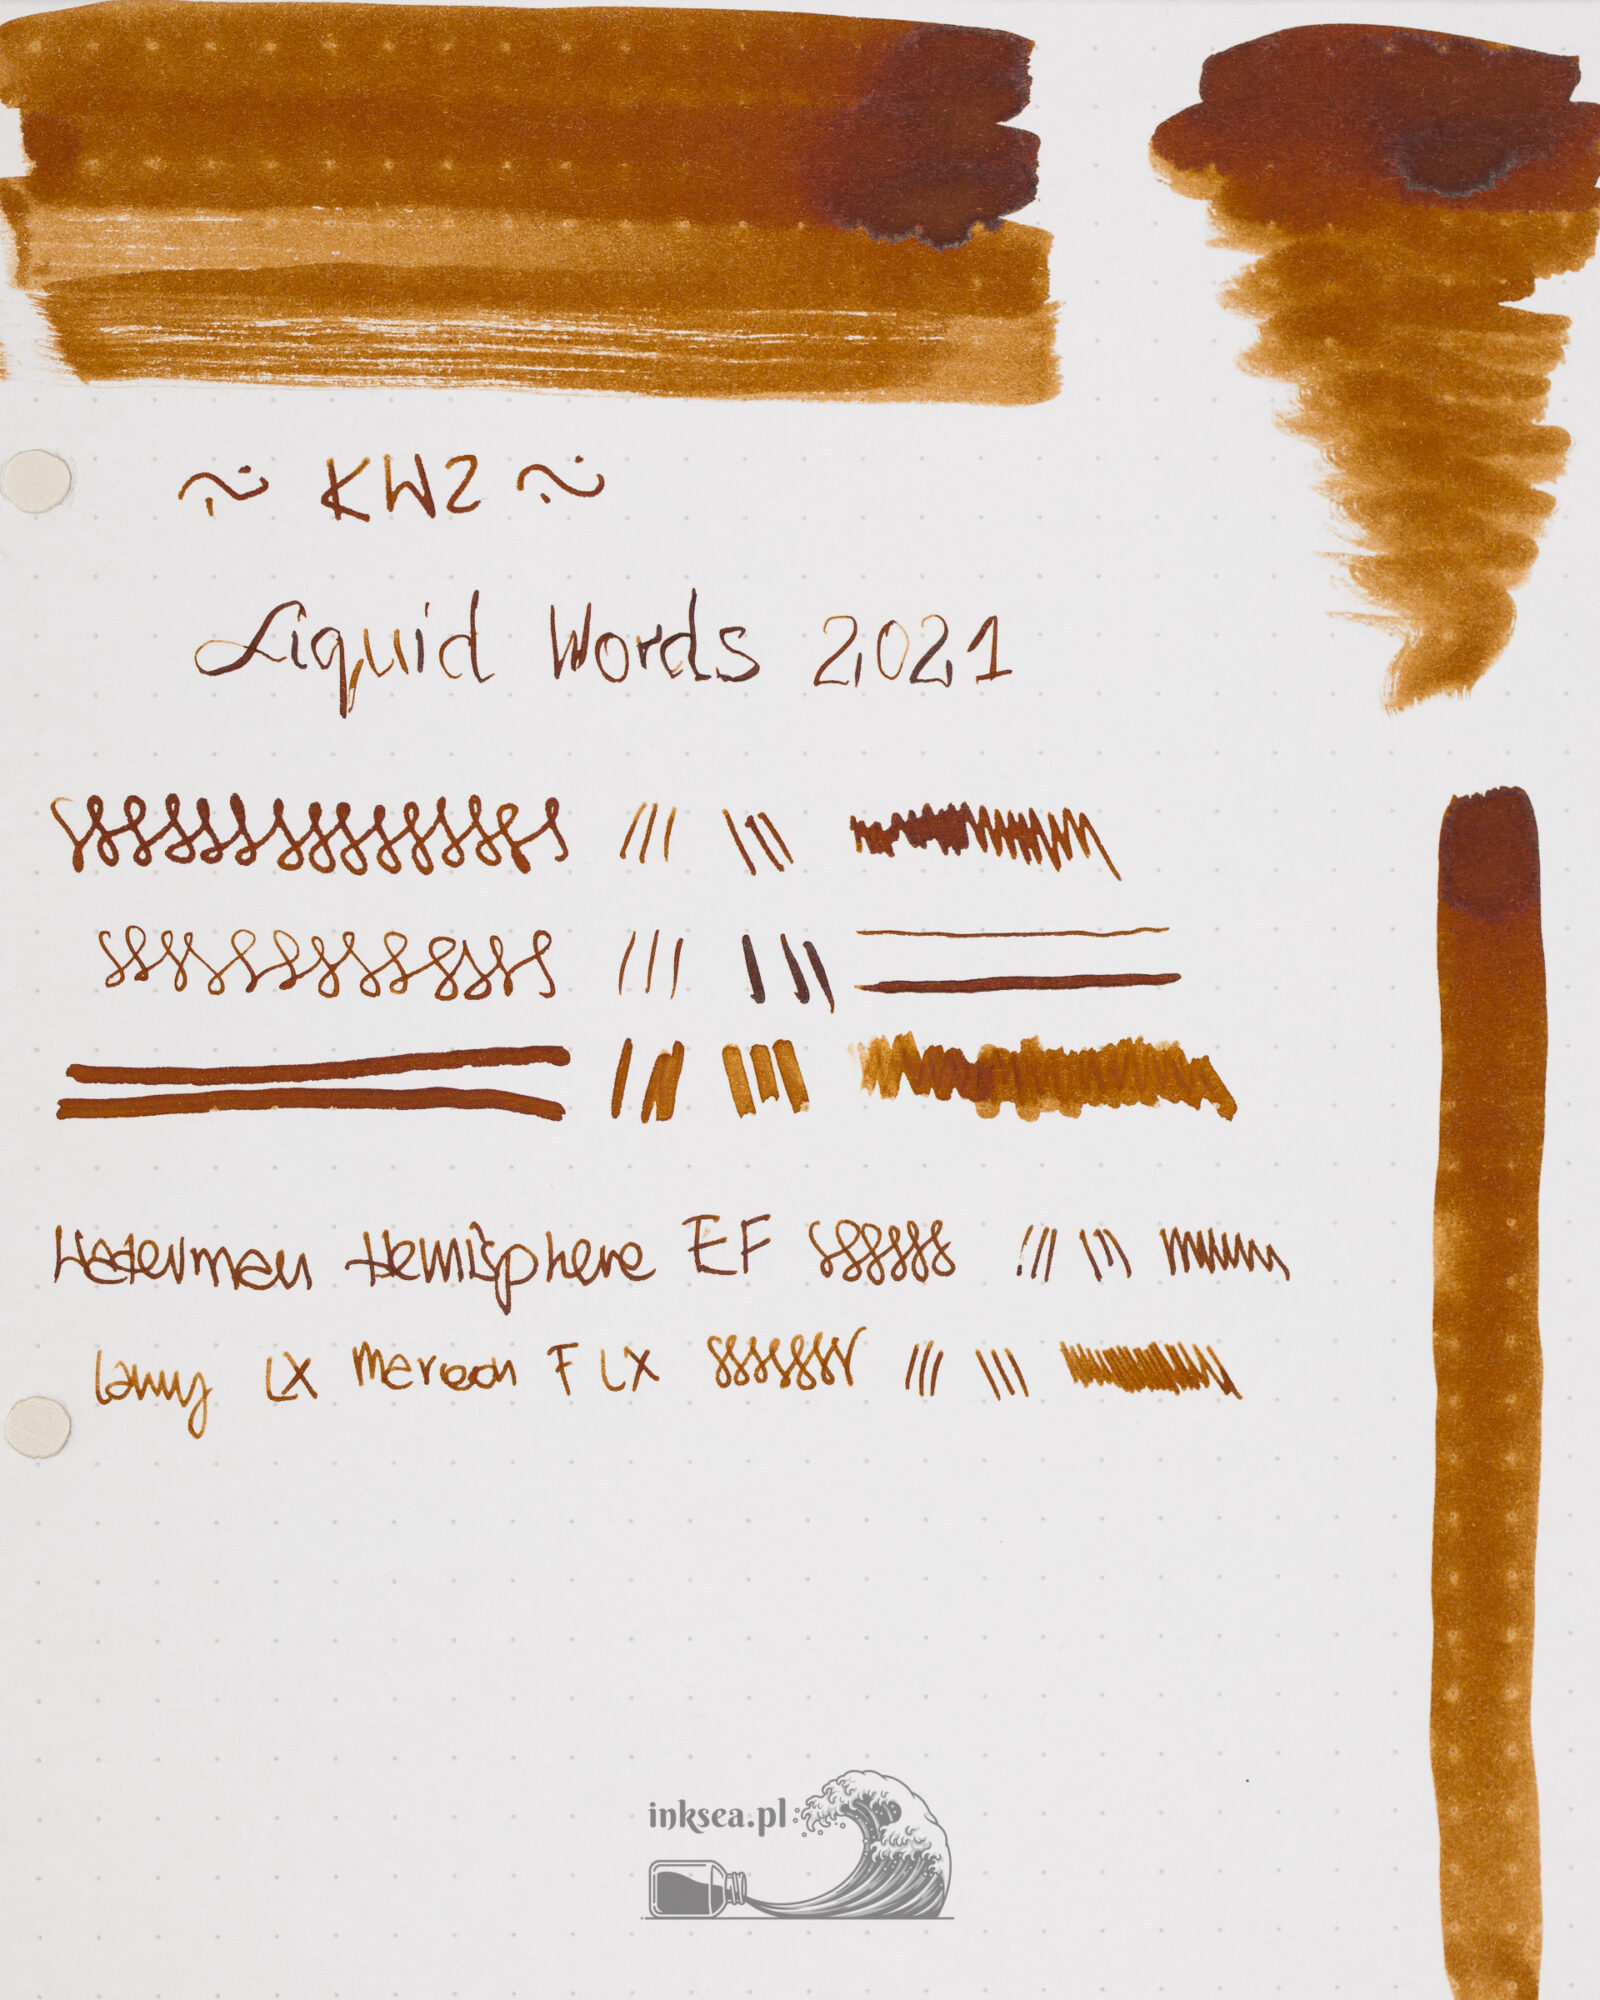 ~ KWZ ~
Liquid Words 2021
Waterman Hemisphere EF
Lamy LX Maroon F LX
inksea.pl